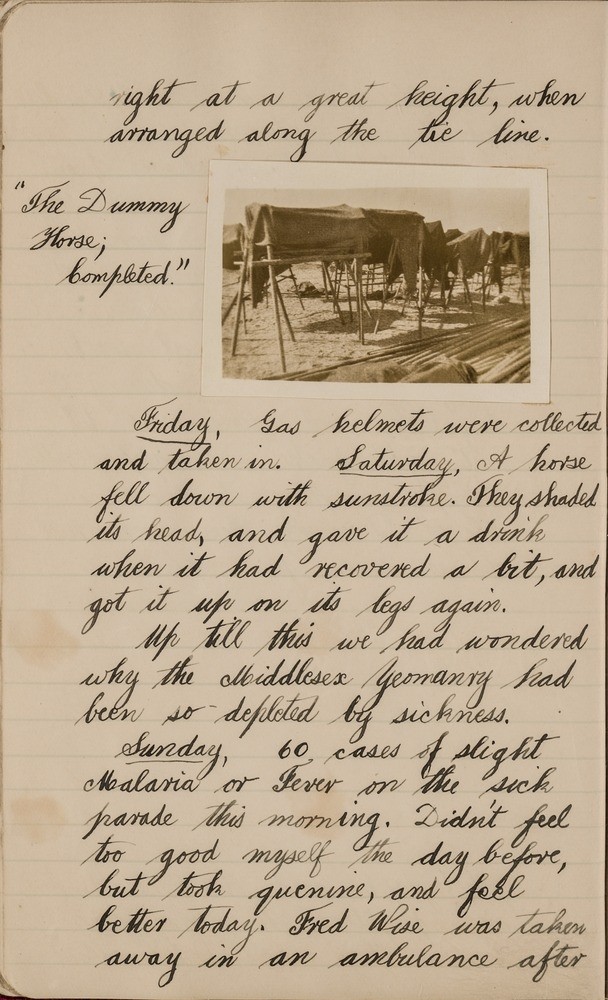 right at a great height, when
arranged along the tie line.
"The Dummy
Horse;
Completed."
Friday, Gas helmets were collected
and taken in. Saturday, A horse
fell down with sunstroke. They shaded
its head, and gave it a drink
when it had recovered a bit, and
got it up on its legs again.
Up till this we had wondered
why the Middlesex Yeomanry had
been so depleted by sickness.
Sunday, 60 cases of slight
Malaria or Fever on the sick
parade this morning. Didn't feel
too good myself the day before,
but took quenine, and feel
better today. Fred Wise was taken
away in an ambulance after